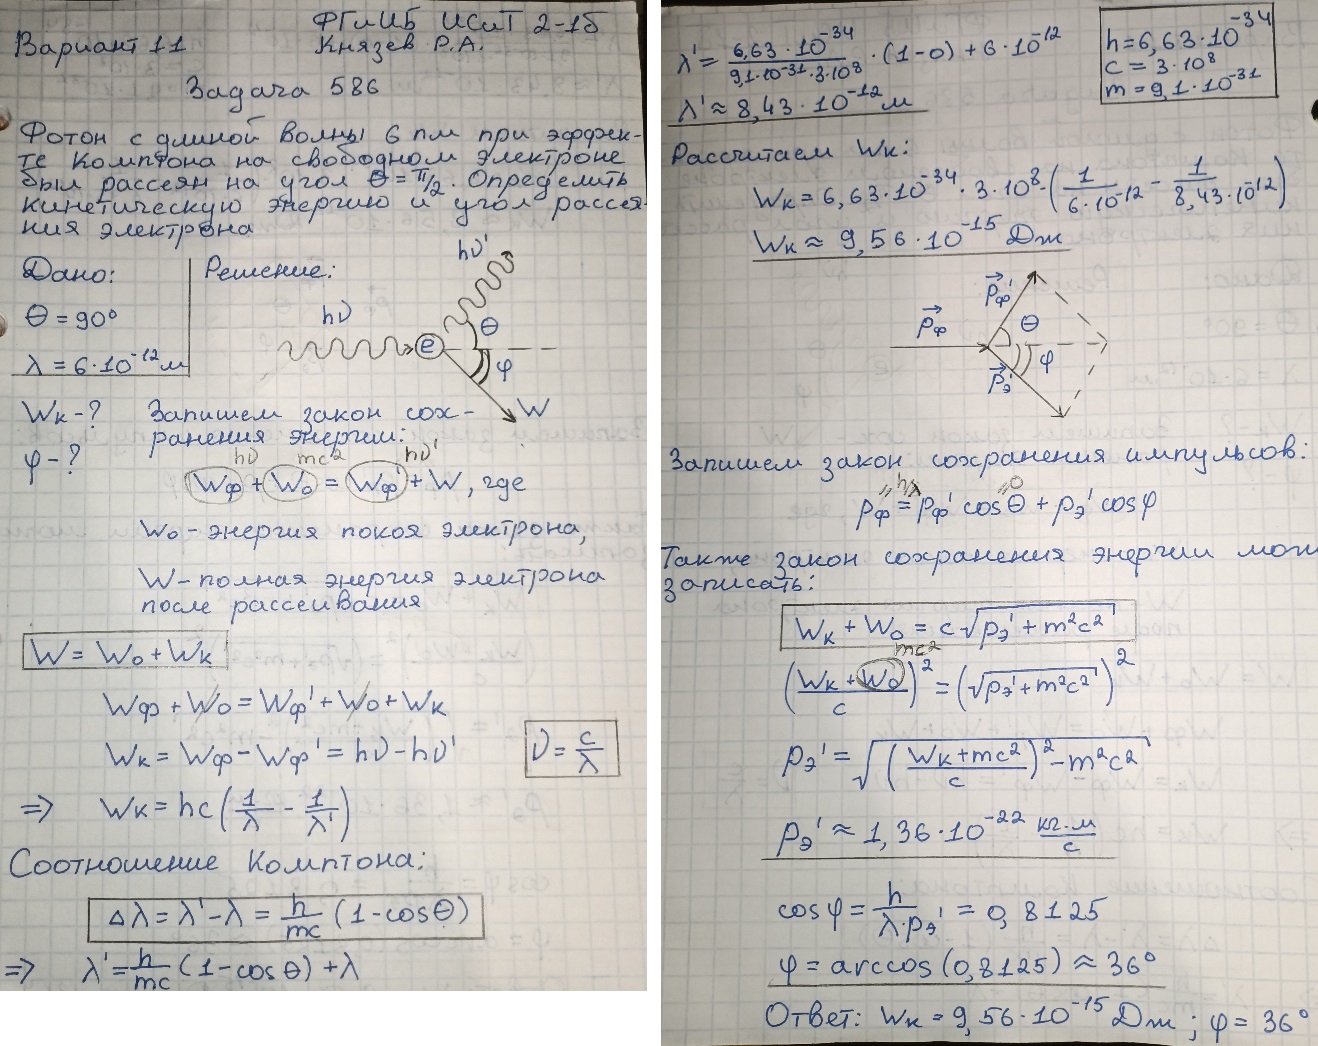 ФГиИБ ИСиТ 2-1б
Вариант 11
Князев Р.А.
Задача 586
Фотон с длиной волны 6 пм при эффек-
те Комптона на свободном электроне
был рассеян на угол Θ=π/2. Определить
кинетическую энергию и угол рассея-
ния электрона
Дано:
Решение:
Θ = 90°
λ = 6·10^-12 м
Wк-?
φ-?
hν
hν'
e
Θ
φ
W
Запишем закон сох-
ранения энергии:
hν mc² hν'
Wф + W₀ = Wф' + W, где
W₀ - энергия покоя электрона,
W - полная энергия электрона
после рассеивания
W = W₀ + Wк
Wф + W₀ = Wф' + W₀ + Wк
Wк = Wф - Wф' = hν - hν'
ν = c/λ
=> Wк = hc(1/λ - 1/λ')
Соотношение Комптона:
Δλ = λ' - λ = h/mc (1-cosΘ)
=> λ' = h/mc (1-cosΘ) + λ
λ' = 6,63·10^-34 / 9,1·10^-31·3·10^8 · (1-0) + 6·10^-12
λ' ≈ 8,43·10^-12 м
h = 6,63·10^-34
c = 3·10^8
m = 9,1·10^-31
Рассчитаем Wк:
Wк = 6,63·10^-34·3·10^8·(1/6·10^-12 - 1/8,43·10^12)
Wк ≈ 9,56·10^-15 Дж
pф
pф'
Θ
φ
pэ'
Запишем закон сохранения импульсов:
h/λ 0
pф = pф' cosΘ + pэ' cosφ
Также закон сохранения энергии мож
записать:
Wк + W₀ = c√(pэ' + m²c²)
mc²
((Wк + W₀)/c)² = (√(pэ' + m²c²))²
pэ' = √(((Wк + mc²)/c)² - m²c²)
pэ' ≈ 1,36·10^-22 кг·м/с
cosφ = h/λ·pэ' = 0,8125
φ = arccos(0,8125) ≈ 36°
Ответ: Wк = 9,56·10^-15 Дж; φ = 36°